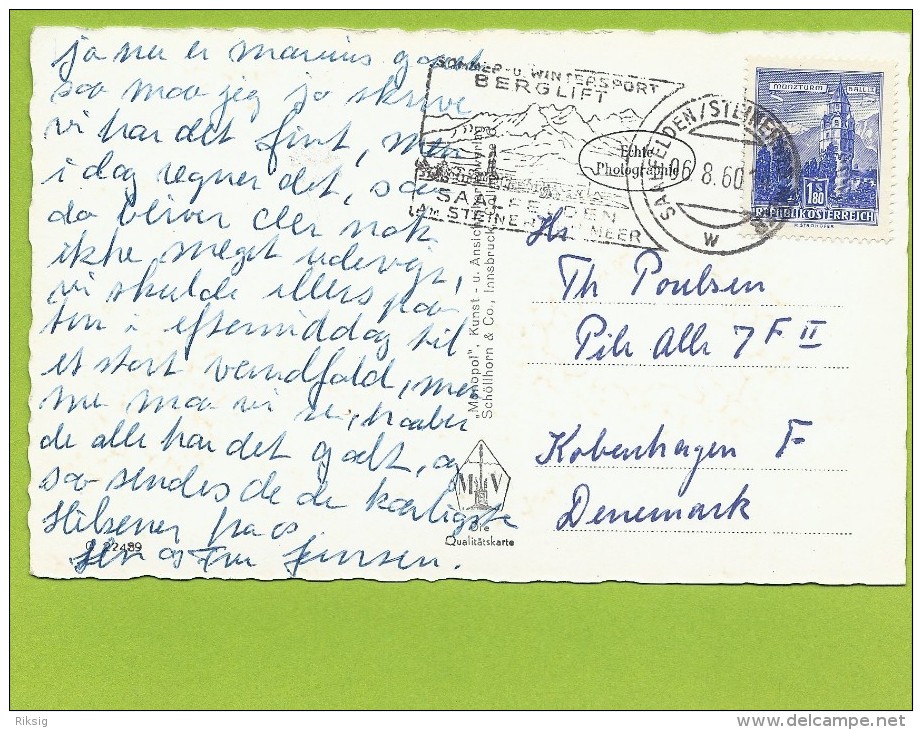 ja nu er marius gaaet
saa maa jeg jo skrive
vi har det fint, men
i dag regner det, saa
da bliver der nok
ikke meget udevejr,
vi skulde ellers paa
ton i eftermiddag til
et stort vandfald, men
nu maa vi se, haaber
de alle har det godt, og
saa sendes de de kærligste
Hilsener fra os
Hr og Fru Jensen.
C 22489
SOMMER- U. WINTERSPORT
BERGLIFT
SAALFELDEN
AM STEINERNEN MEER
Echte
Photographie
SAALFELDEN/STEINERN
06.8.60
W
MÜNZTURM HALL I.T.
S 1.80
REPUBLIK ÖSTERREICH
"Monopol", Kunst- u. Ansichtskarten
Schöllhorn & Co., Innsbruck
M V
Die
Qualitätskarte
Hr
Th Poulsen
Pile Alle 7 F II
Kobenhagen F
Denemark
Riksig
www.delcampe.net